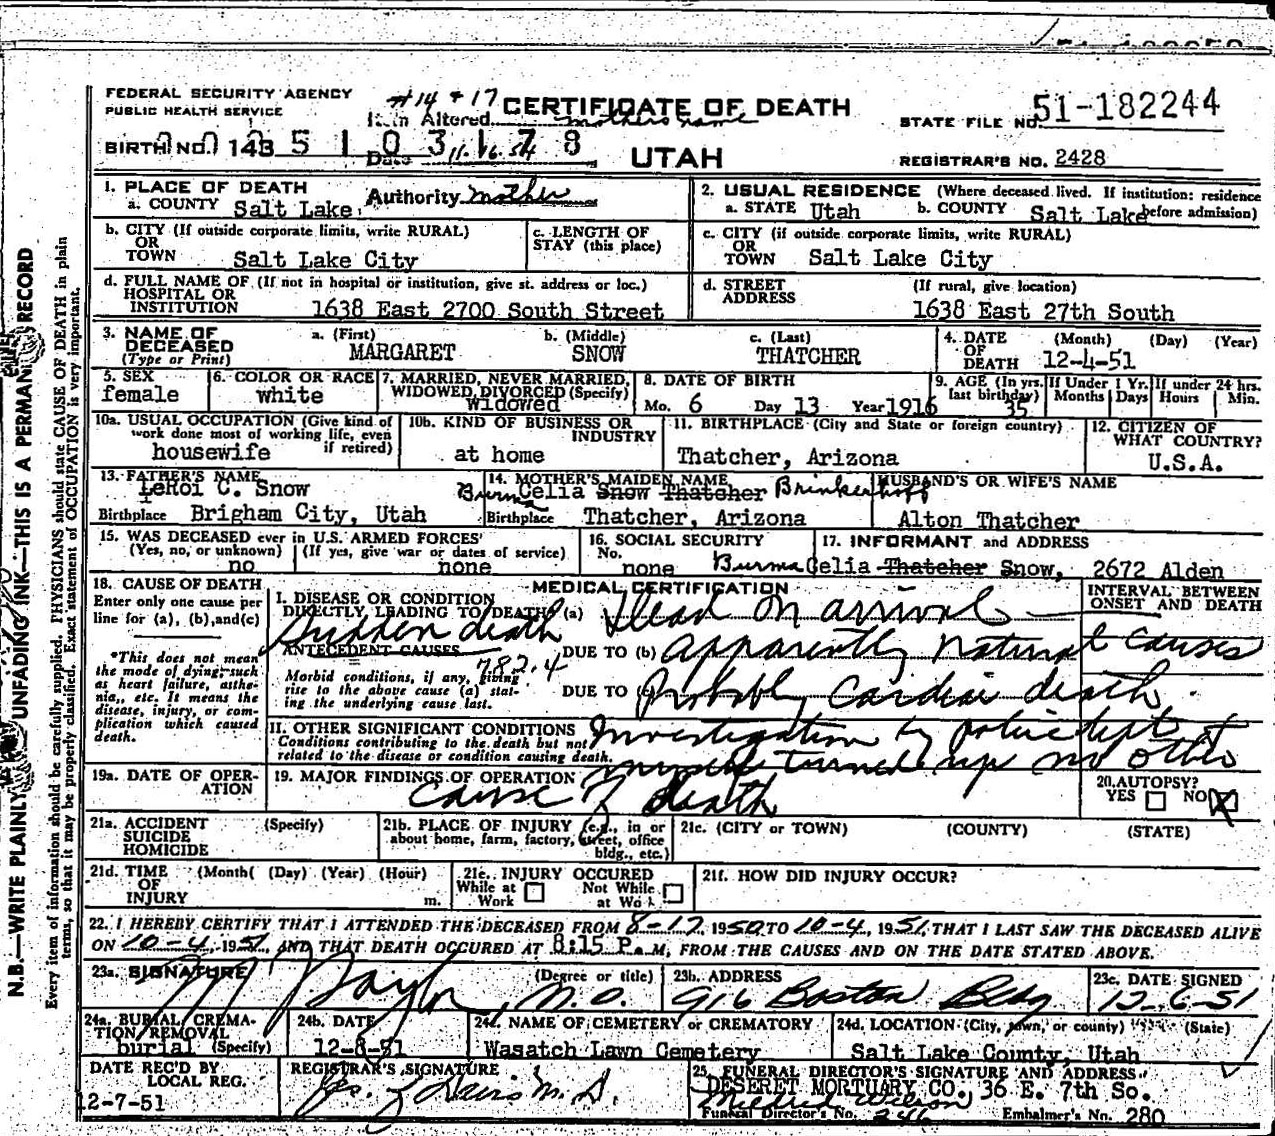 FEDERAL SECURITY AGENCY
PUBLIC HEALTH SERVICE
#14 + 17
Item Altered mothers name
CERTIFICATE OF DEATH
STATE FILE NO. 51-182244
BIRTH NO. 143 5 1 0 3 1 7 8
Date 11.16.54
UTAH
REGISTRAR'S NO. 2428
Authority mother
1. PLACE OF DEATH
a. COUNTY Salt Lake
2. USUAL RESIDENCE (Where deceased lived. If institution: residence before admission)
a. STATE Utah b. COUNTY Salt Lake
b. CITY (If outside corporate limits, write RURAL)
OR
TOWN Salt Lake City
c. LENGTH OF STAY (this place)
c. CITY (if outside corporate limits, write RURAL)
OR
TOWN Salt Lake City
d. FULL NAME OF (If not in hospital or institution, give st. address or loc.)
HOSPITAL OR
INSTITUTION 1638 East 2700 South Street
d. STREET ADDRESS (If rural, give location)
1638 East 27th South
3. NAME OF DECEASED (Type or Print)
a. (First) b. (Middle) c. (Last)
MARGARET SNOW THATCHER
4. DATE OF DEATH (Month) (Day) (Year)
12-4-51
5. SEX
female
6. COLOR OR RACE
white
7. MARRIED, NEVER MARRIED, WIDOWED, DIVORCED (Specify)
Widowed
8. DATE OF BIRTH
Mo. 6 Day 13 Year 1916
9. AGE (In yrs. last birthday)
35
If Under 1 Yr. Months Days
If under 24 hrs. Hours Min.
10a. USUAL OCCUPATION (Give kind of work done most of working life, even if retired)
housewife
10b. KIND OF BUSINESS OR INDUSTRY
at home
11. BIRTHPLACE (City and State or foreign country)
Thatcher, Arizona
12. CITIZEN OF WHAT COUNTRY?
U.S.A.
13. FATHER'S NAME
LeRoi C. Snow
Birthplace Brigham City, Utah
14. MOTHER'S MAIDEN NAME
Burma Celia Snow Thatcher Brinkerhoff
Birthplace Thatcher, Arizona
HUSBAND'S OR WIFE'S NAME
Alton Thatcher
15. WAS DECEASED ever in U.S. ARMED FORCES?
(Yes, no, or unknown) (If yes, give war or dates of service)
no none
16. SOCIAL SECURITY No.
none
17. INFORMANT and ADDRESS
Burma Celia Thatcher Snow, 2672 Alden
18. CAUSE OF DEATH
Enter only one cause per line for (a), (b), and (c)
*This does not mean the mode of dying, such as heart failure, asthenia, etc. It means the disease, injury, or complication which caused death.
MEDICAL CERTIFICATION
INTERVAL BETWEEN ONSET AND DEATH
I. DISEASE OR CONDITION
DIRECTLY LEADING TO DEATH* (a) Dead on arrival
Sudden death
ANTECEDENT CAUSES
782.4
DUE TO (b) apparently natural causes
Morbid conditions, if any, giving rise to the above cause (a) stating the underlying cause last.
DUE TO (c) Probably cardiac death
II. OTHER SIGNIFICANT CONDITIONS
Conditions contributing to the death but not related to the disease or condition causing death.
Investigation by police dept +
myself turned up no other
cause of death
19a. DATE OF OPERATION
19. MAJOR FINDINGS OF OPERATION
20. AUTOPSY?
YES NO X
21a. ACCIDENT SUICIDE HOMICIDE (Specify)
21b. PLACE OF INJURY (e.g., in or about home, farm, factory, street, office bldg., etc.)
21c. (CITY or TOWN) (COUNTY) (STATE)
21d. TIME OF INJURY (Month) (Day) (Year) (Hour) m.
21e. INJURY OCCURED
While at Work Not While at Work
21f. HOW DID INJURY OCCUR?
22. I HEREBY CERTIFY THAT I ATTENDED THE DECEASED FROM 8-17, 1950, TO 10-4, 1951, THAT I LAST SAW THE DECEASED ALIVE
ON 10-4, 1951, AND THAT DEATH OCCURED AT 8:15 P.M, FROM THE CAUSES AND ON THE DATE STATED ABOVE.
23a. SIGNATURE (Degree or title)
M.D.
23b. ADDRESS
916 Boston Bldg
23c. DATE SIGNED
12-6-51
24a. BURIAL, CREMATION, REMOVAL (Specify)
burial
24b. DATE
12-8-51
24c. NAME OF CEMETERY or CREMATORY
Wasatch Lawn Cemetery
24d. LOCATION (City, town, or county) (State)
Salt Lake County, Utah
DATE REC'D BY LOCAL REG.
12-7-51
REGISTRAR'S SIGNATURE
25. FUNERAL DIRECTOR'S SIGNATURE AND ADDRESS
DESERET MORTUARY CO. 36 E. 7th So.
Mildred Wilson
Funeral Director's No. 246 Embalmer's No. 280
N.B.—WRITE PLAINLY UNFADING INK—THIS IS A PERMANENT RECORD
Every item of information should be carefully supplied. PHYSICIANS should state CAUSE OF DEATH in plain
terms, so that it may be properly classified. Exact statement of OCCUPATION is very important.